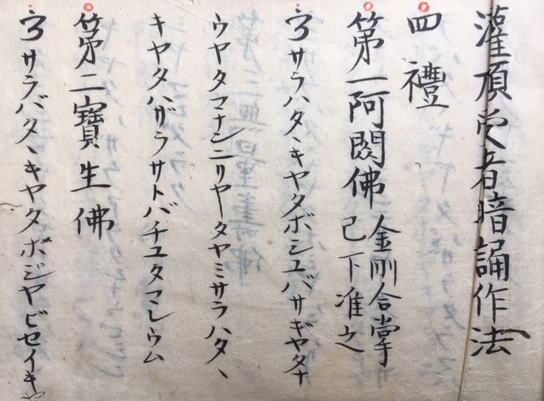 灌頂受者暗誦作法
四禮
第一阿閦佛 金剛合掌
已下准之
ヲサラハタヽキヤタボジユバサギヤタナ
ウヤタマナシニリヤータヤミサラハタヽ
キヤタハザラサトバチユタマレウム
第二寶生佛
ヲサラバタヽキヤタボジヤビセイキヤ